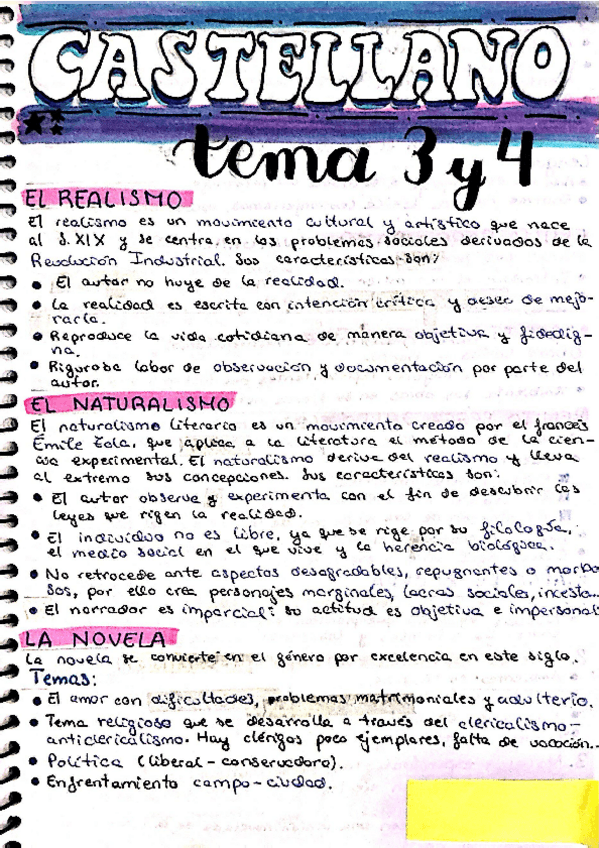 CASTELLANO
tema 3 y 4
EL REALISMO
El realismo es un movimiento cultural y artístico que nace
al S. XIX y se centra en los problemas sociales derivados de la
Revolución Industrial. Sus características son:
• El autor no huye de la realidad.
• La realidad es escrita con intención crítica y deseo de mejo-
rarla.
• Reproduce la vida cotidiana de manera objetiva y fidedig-
na.
• Rigurosa labor de observación y documentación por parte del
autor.
EL NATURALISMO
El naturalismo literario es un movimiento creado por el francés
Émile Zola, que aplica a la literatura el método de la cien-
cia experimental. El naturalismo deriva del realismo y lleva
al extremo sus concepciones. Sus características son:
• El autor observa y experimenta con el fin de descubrir las
leyes que rigen la realidad.
• El individuo no es libre, ya que se rige por su filología,
el medio social en el que vive y la herencia biológica.
• No retrocede ante aspectos desagradables, repugnantes o morbo
sos, por ello crea personajes marginales, lacras sociales, incesto...
• El norrador es imparcial: su actitud es objetiva e impersonal
LA NOVELA
La novela se convierte en el género por excelencia en este siglo.
Temas:
• El amor con dificultades, problemas matrimoniales y adulterio.
• Tema religioso que se desarrolla a través del clericalismo-
anticlericalismo. Hay clérigos poco ejemplares, falta de vocación...
• Política (liberal - conservadora).
• Enfrentamiento campo-ciudad.